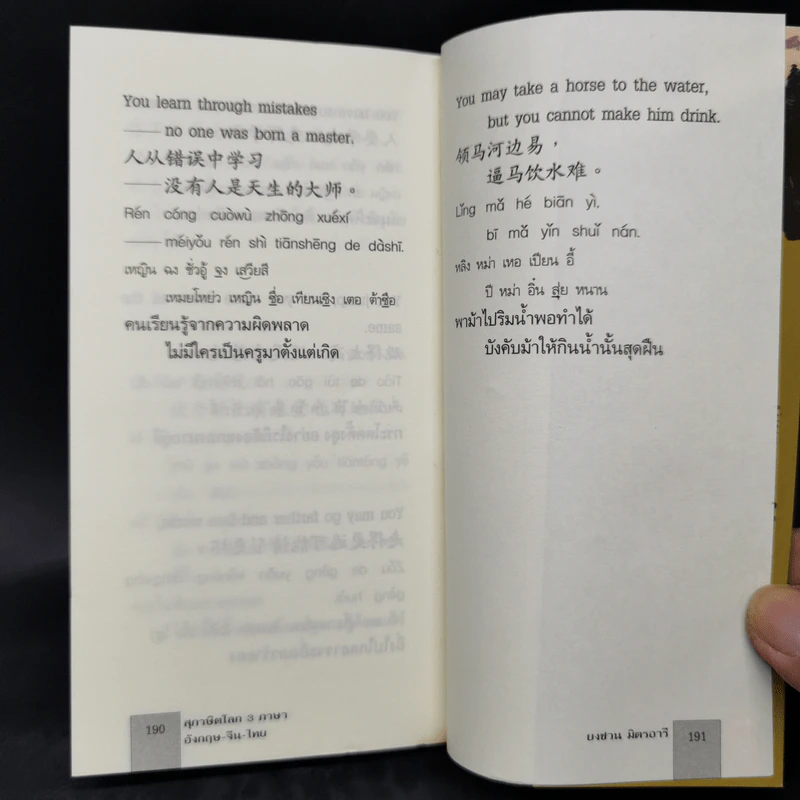 You learn through mistakes
—— no one was born a master.
人从错误中学习
——没有人是天生的大师。
Rén cóng cuòwù zhōng xuéxí
—— méiyǒu rén shì tiānshēng de dàshī.
เหญิน ฉง ชั่วอู้ จฺง เสวียสี
เหมยโหย่ว เหญิน ซื่อ เทียนเซิง เตอ ต้าซือ
คนเรียนรู้จากความผิดพลาด
ไม่มีใครเป็นครูมาตั้งแต่เกิด
190
สุภาษิตโลก 3 ภาษา
อังกฤษ-จีน-ไทย
You may take a horse to the water,
but you cannot make him drink.
领马河边易，
逼马饮水难。
Lǐng mǎ hé biān yì,
bī mǎ yǐn shuǐ nán.
หลิง หม่า เหอ เปียน อี้
ปี หม่า อิ๋น สุ่ย หนาน
พาม้าไปริมน้ำพอทำได้
บังคับม้าให้กินน้ำนั้นสุดฝืน
ยงชวน มิตรอารี
191